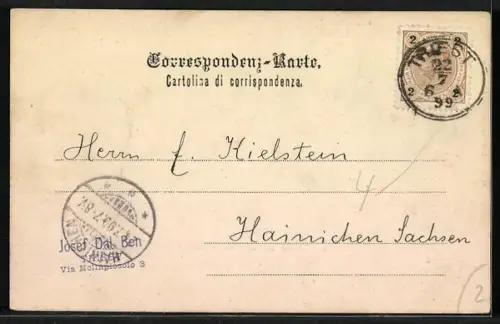 Correspondenz-Karte.
Cartolina di corrispondenza.
2 2
TRIEST
22
7
6
99
2
Herrn E. Kielstein
4
Hainichen Sachsen
Josef Dal Ben
Via Molinpiccolo 3
2